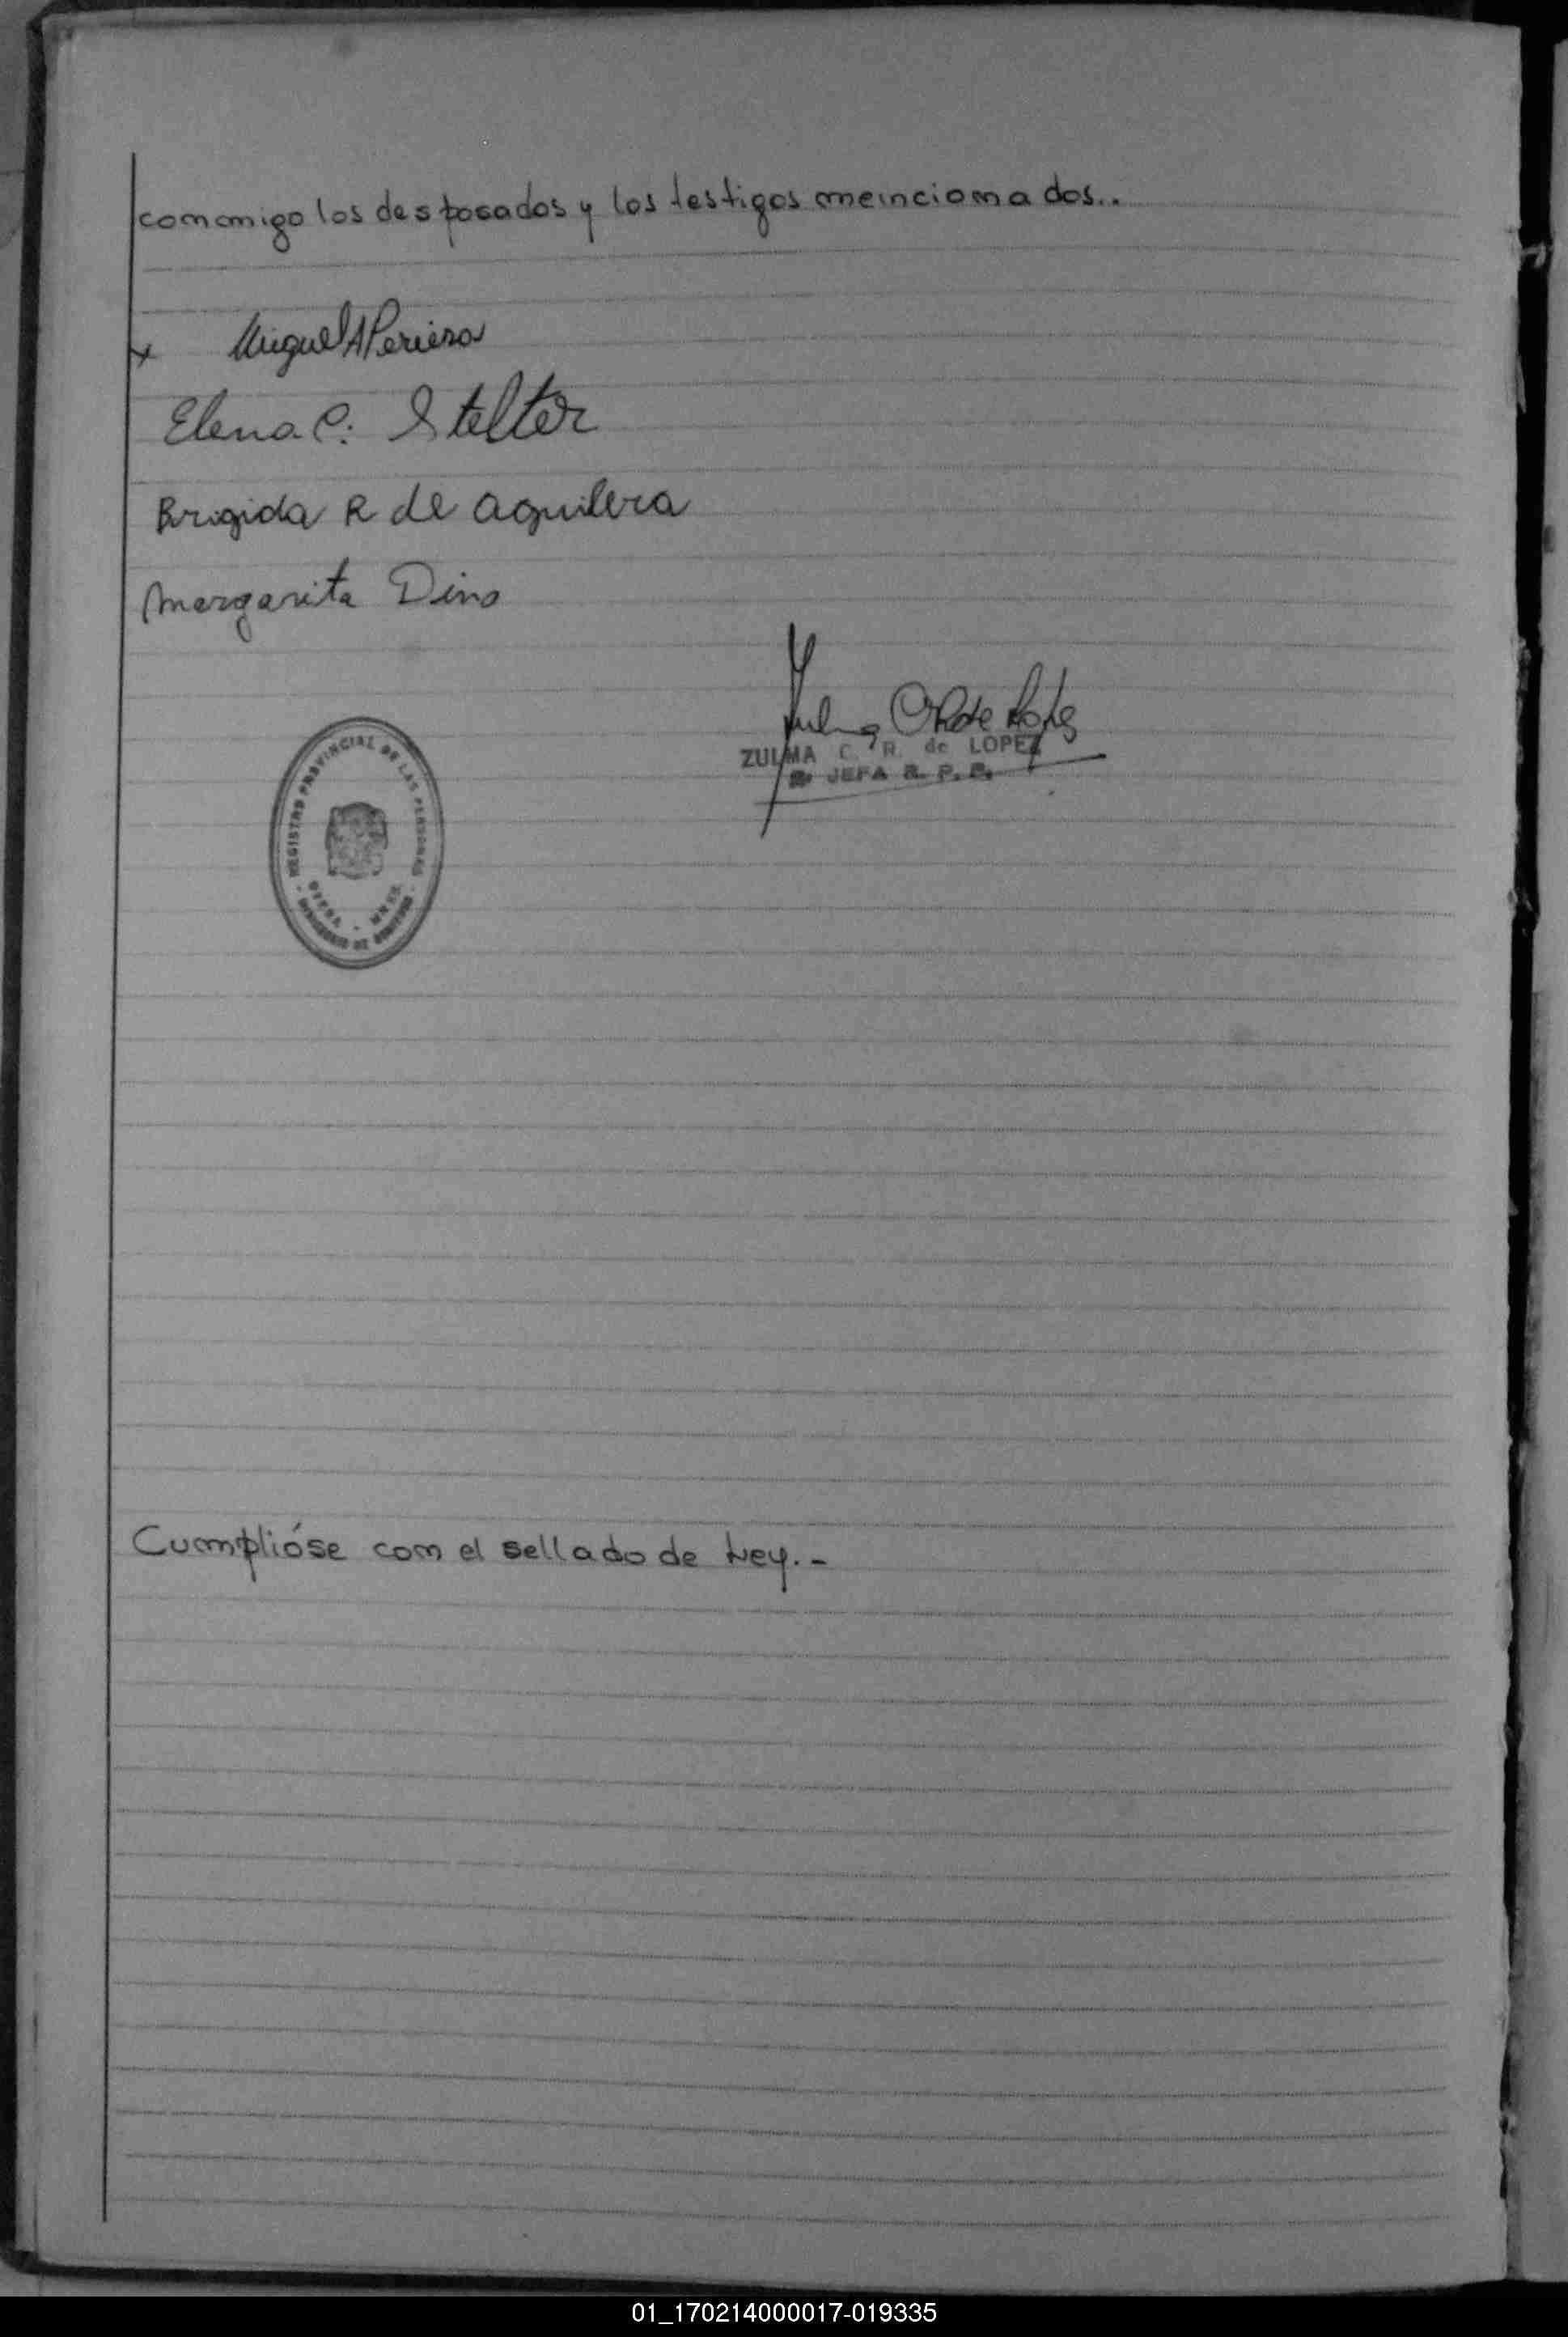 conmigo los desposados y los testigos meincionados..
x Miguel A Periera
Elena C. Stelter
Brigida R de aguilera
Margarita Dino
Zulma C R de López
ZULMA C. R. de LOPEZ
JEFA R. P. P.
REGISTRO PROVINCIAL DE LAS PERSONAS
Cumplióse con el sellado de Ley.-
01_170214000017-019335